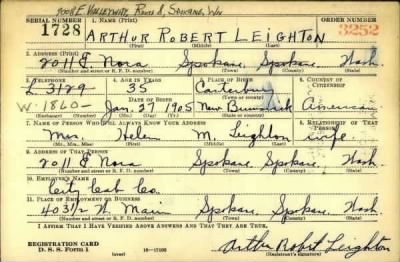 9008 E. Valleyway, Route 8, Spokane, Wn
SERIAL NUMBER 1. NAME (Print) ORDER NUMBER
1728 ARTHUR ROBERT LEIGHTON 3252
(First) (Middle) (Last)
2. ADDRESS (Print)
2011 E. Nora Spokane, Spokane, Wash.
(Number and street or R. F. D. number) (Town) (County) (State)
3. TELEPHONE 4. AGE IN YEARS 5. PLACE OF BIRTH 6. COUNTRY OF CITIZENSHIP
L 3129 35 Canterbury
W. 1860 DATE OF BIRTH (Town or county)
Jan. 27 1905 New Brunswick American
(Exchange) (Number) (Mo.) (Day) (Yr.) (State or country)
7. NAME OF PERSON WHO WILL ALWAYS KNOW YOUR ADDRESS 8. RELATIONSHIP OF THAT PERSON
Mrs. Helen M. Leighton wife
(Mr., Mrs., Miss) (First) (Middle) (Last)
9. ADDRESS OF THAT PERSON
2011 E. Nora Spokane, Spokane, Wash.
(Number and street or R. F. D. number) (Town) (County) (State)
10. EMPLOYER'S NAME
City Cab Co.
11. PLACE OF EMPLOYMENT OR BUSINESS
403 1/2 W. Main Spokane, Spokane, Wash.
(Number and street or R. F. D. number) (Town) (County) (State)
I AFFIRM THAT I HAVE VERIFIED ABOVE ANSWERS AND THAT THEY ARE TRUE.
REGISTRATION CARD
D. S. S. Form 1 16—17105 Arthur Robert Leighton
(over) (Registrant's signature)